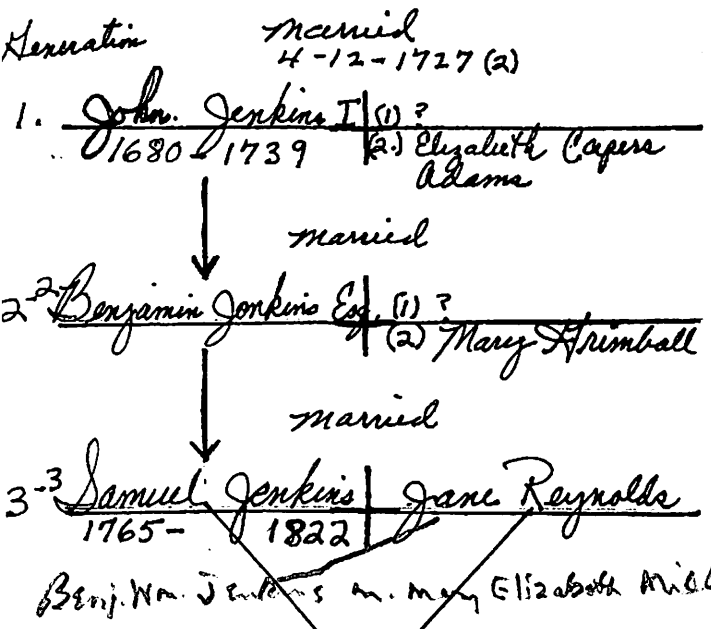 Generation
Married
4-12-1727 (2)
1. John. Jenkins I (1) ?
1680 - 1739 (2.) Elizabeth Capers
Adams
Married
2-2 Benjamin Jenkins Esq. (1) ?
(2) Mary Grimball
Married
3-3 Samuel Jenkins Jane Reynolds
1765- 1822
Benj. Wm. Jenkins m. Mary Elizabeth